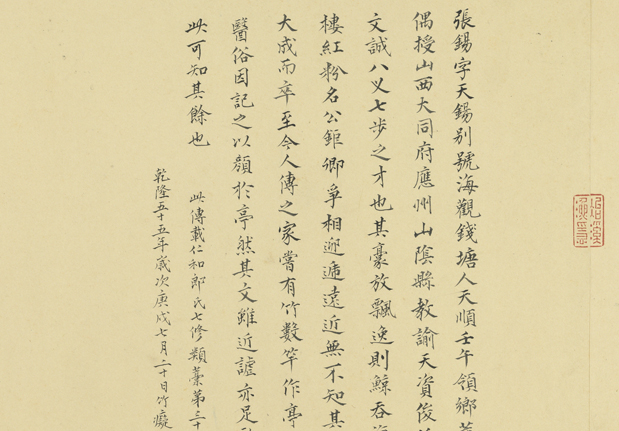 張錫字天錫别號海觀錢塘人天順壬午領鄉
偶授山西大同府應州山陰縣教諭天資俊
文誠八义七步之才也其豪放飄逸則鯨吞海
樓紅粉名公鉅卿爭相迎遞遠近無不知其
大成而卒至今人傳之家嘗有竹數竿作亭
醫俗因記之以顏於亭然其文雖近謔亦足
此可知其餘也
此傳載仁和郎氏七修類藁第三十
乾隆五十五年歲次庚戌七月二十日竹癡